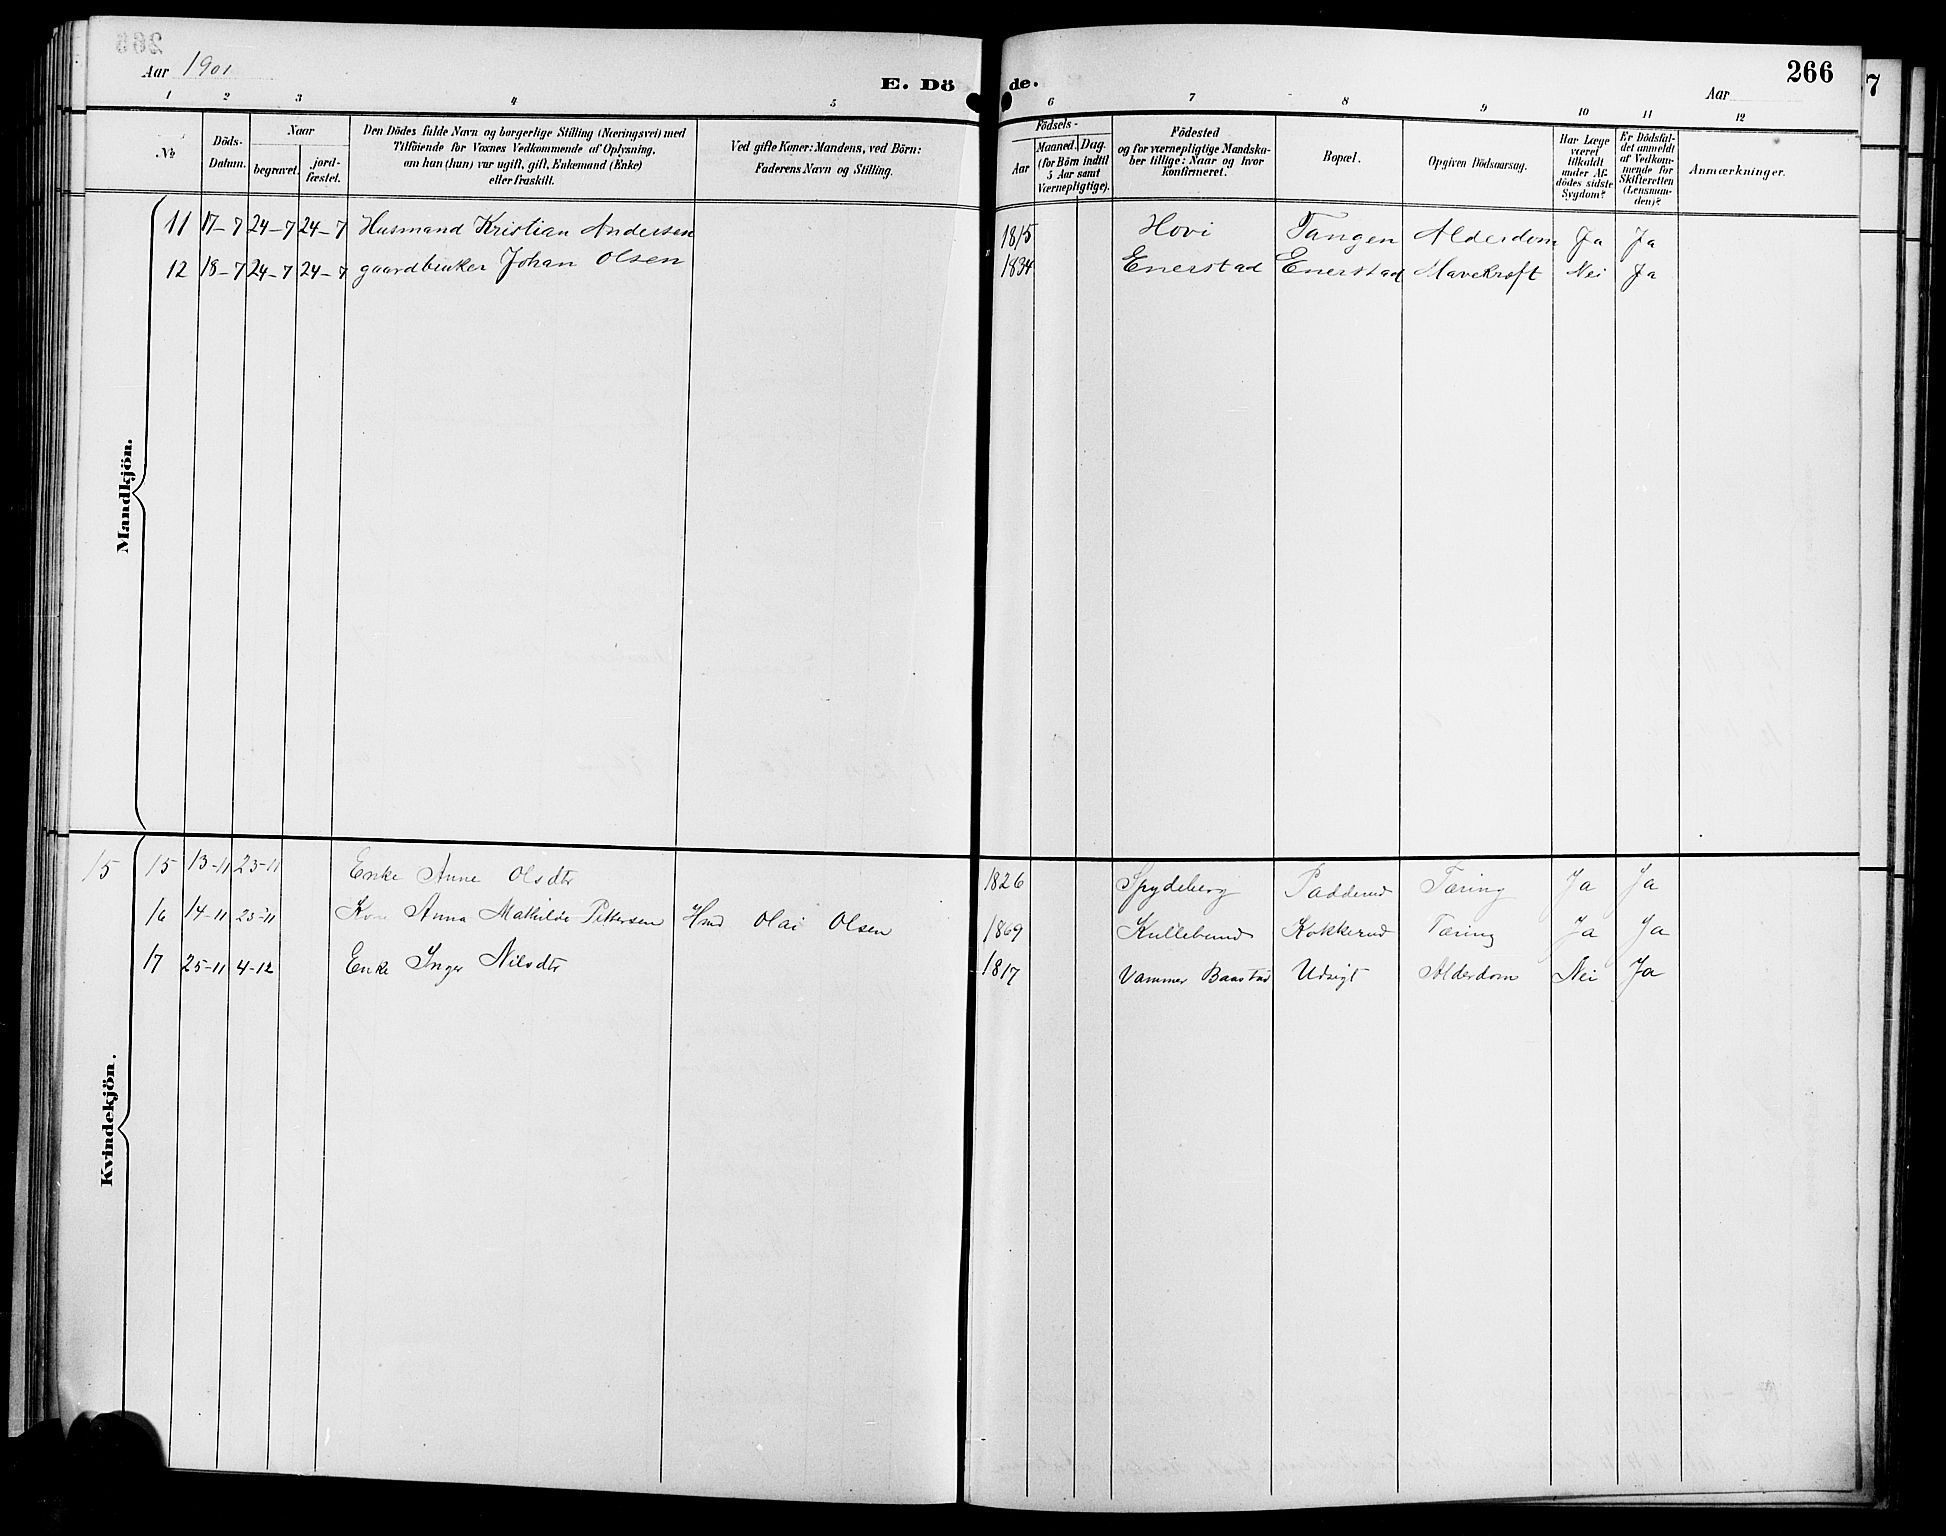 Aar 1901
E. Döde.
Aar
266
1 2 3 4 5 6 7 8 9 10 11 12
№
Döds-Datum.
Naar
begravet.
jord-fæstet.
Den Dödes fulde Navn og borgerlige Stilling (Næringsvei) med
Tilföiende for Voxnes Vedkommende af Oplysning,
om han (hun) var ugift, gift, Enkemand (Enke)
eller fraskilt.
Ved gifte Koner: Mandens, ved Börn:
Faderens Navn og Stilling.
Födsels-
Aar
Maaned. Dag.
(for Börn indtil
5 Aar samt
Værnepligtige).
Födested
og for værnepligtige Mandska-
ber tillige: Naar og hvor
konfirmeret.
Bopæl.
Opgiven Dödsaarsag.
Har Læge
været
tilkaldt
under Af-
dödes sidste
Sygdom?
Er Dödsfal-
det anmeldt
af Vedkom-
mende for
Skifteretten
(Lensman-
den)?
Anmærkninger.
Mandkjön.
11 17-7 24-7 24-7 Husmand Kristian Andersen 1815 Hovi Tangen Alderdom Ja Ja
12 18-7 24-7 24-7 gaardbruker Johan Olsen 1834 Enerstad Enerstad Mavekræft Nei Ja
Kvindekjön.
15 15 13-11 23-11 Enke Anne Olsdtr 1826 Spydeberg Padderud Tæring Ja Ja
16 14-11 23-11 Kone Anna Mathilde Pettersen Hmd Olai Olsen 1869 Kullebund Kokkerud Tæring Ja Ja
17 25-11 4-12 Enke Inger Nilsdtr 1817 Vammer Baastad Udsigt Alderdom Nei Ja